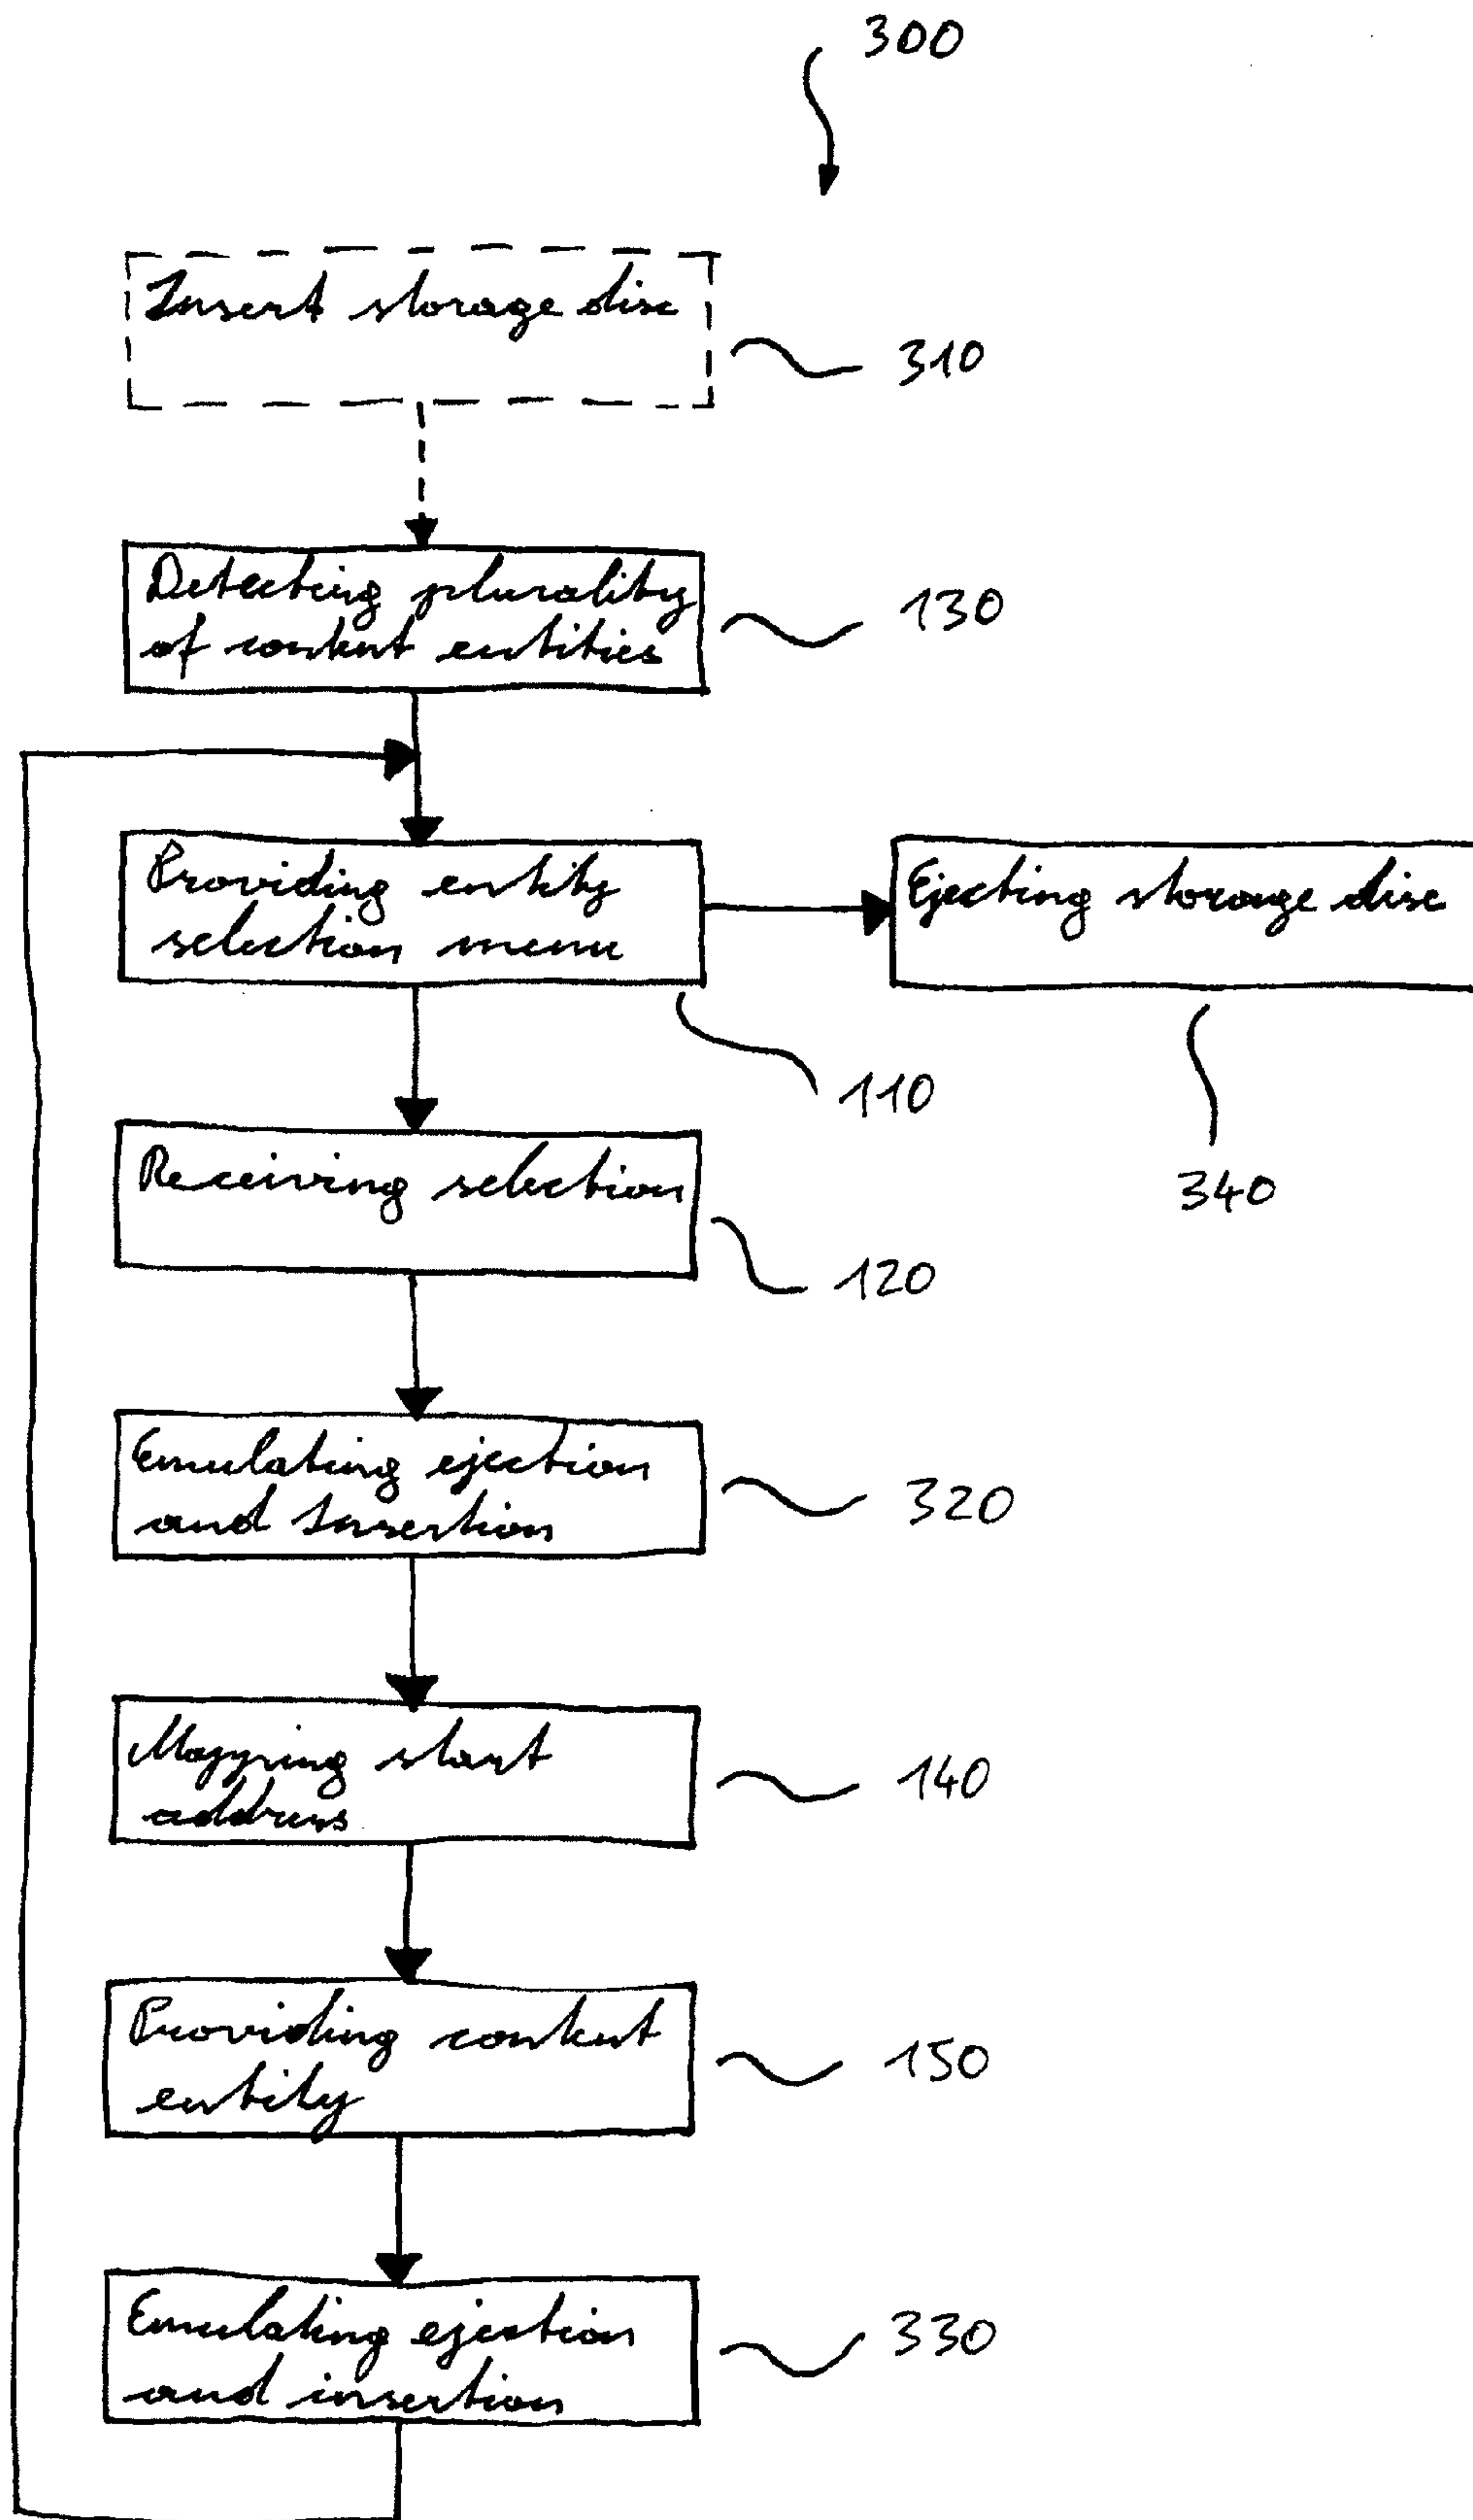 300
Insert storage disc
310
Detecting plurality
of content entities
130
Providing entity
selection menu
Ejecting storage disc
110
340
Receiving selection
120
Emulating ejection
and Insertion
320
Mapping start
address
140
Providing content
entity
150
Emulating ejection
and insertion
330